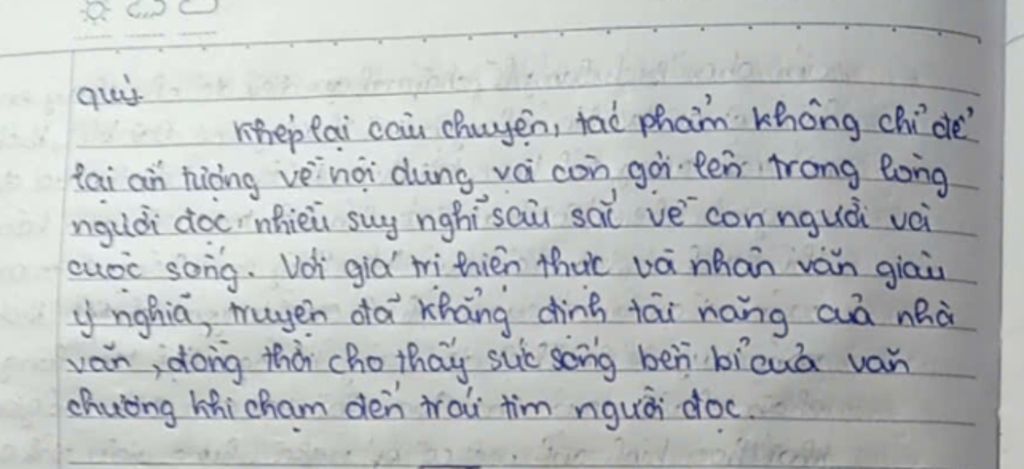 quý.
Khép lại câu chuyện, tác phẩm không chỉ để
lại ấn tượng về nội dung và còn gợi lên trong lòng
người đọc nhiều suy nghĩ sâu sắc về con người và
cuộc sống. Với giá trị hiện thực và nhân văn giàu
ý nghĩa, truyện đã khẳng định tài năng của nhà
văn, đồng thời cho thấy sức sống bền bỉ của văn
chương khi chạm đến trái tim người đọc.